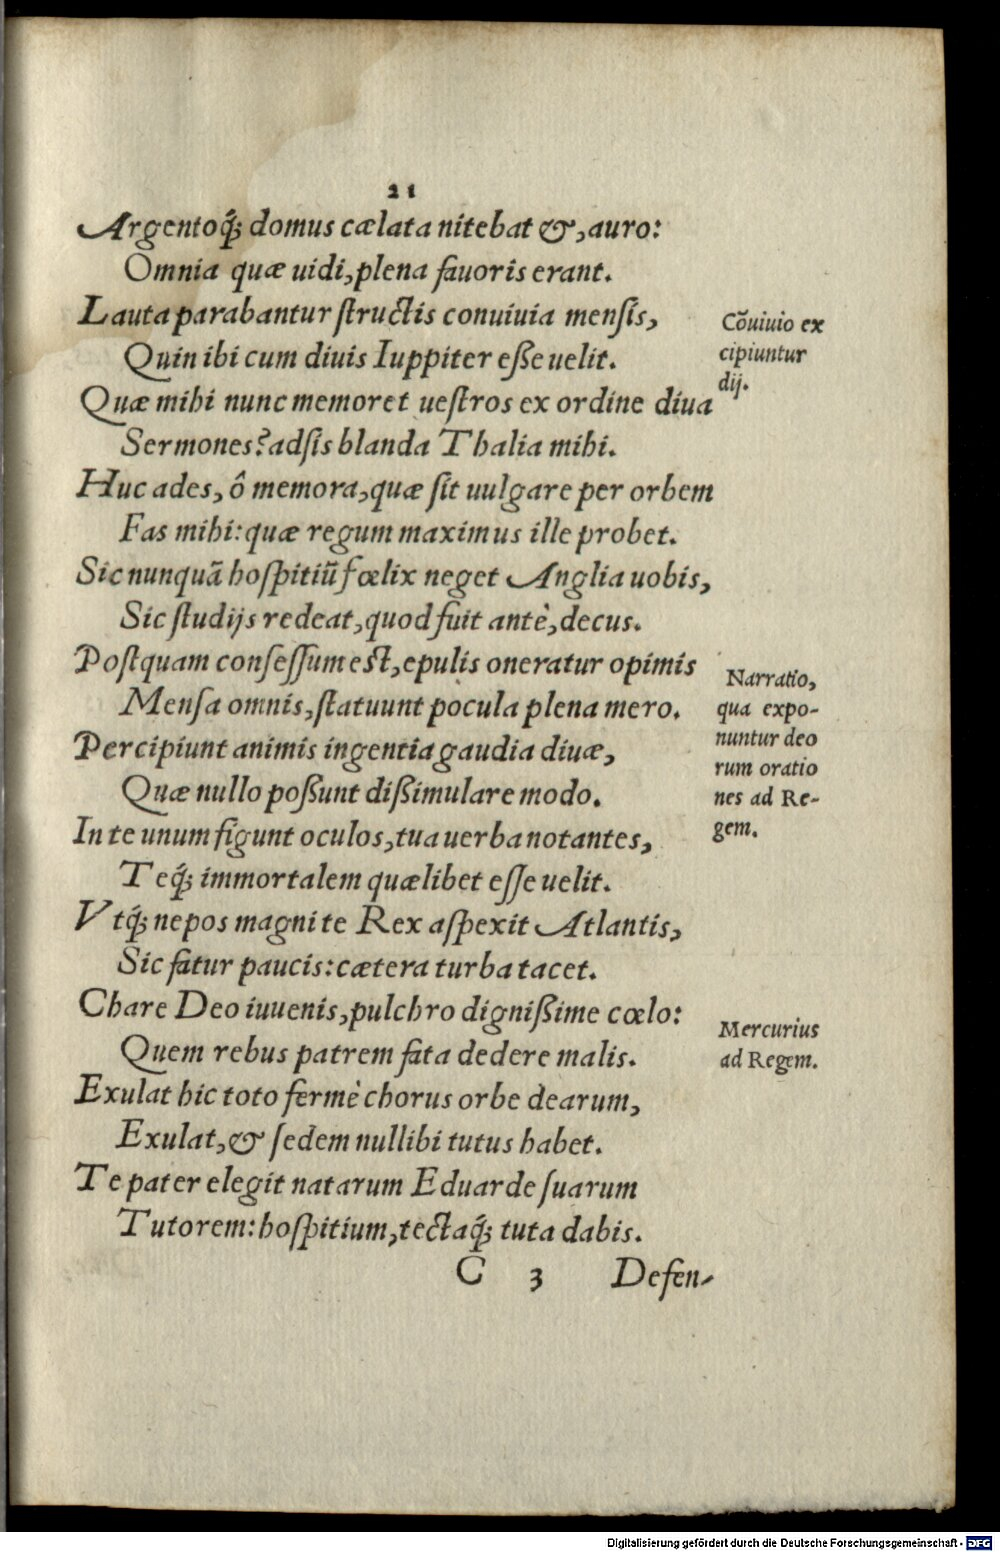 21
Argentoq́; domus cælata nitebat &, auro:
Omnia quæ uidi, plena fauoris erant.
Lauta parabantur ſtructis conuiuia menſis,
Quin ibi cum diuis Iuppiter eſſe uelit.
Quæ mihi nunc memoret ueſtros ex ordine diua
Sermones? adſis blanda Thalia mihi.
Huc ades, ô memora, quæ ſit uulgare per orbem
Fas mihi: quæ regum maximus ille probet.
Sic nunquā hoſpitiū fœlix neget Anglia uobis,
Sic ſtudijs redeat, quod fuit antè, decus.
Poſtquam conſeſſum eſt, epulis oneratur opimis
Menſa omnis, ſtatuunt pocula plena mero.
Percipiunt animis ingentia gaudia diuæ,
Quæ nullo poſſunt diſſimulare modo.
In te unum figunt oculos, tua uerba notantes,
Teq́; immortalem quælibet eſſe uelit.
Vtq́; nepos magni te Rex aſpexit Atlantis,
Sic fatur paucis: cætera turba tacet.
Chare Deo iuuenis, pulchro digniſſime cœlo:
Quem rebus patrem fata dedere malis.
Exulat hic toto fermè chorus orbe dearum,
Exulat, & ſedem nullibi tutus habet.
Te pater elegit natarum Eduarde ſuarum
Tutorem: hoſpitium, tectaq́; tuta dabis.
C 3 Defen-
Cōuiuio ex
cipiuntur
dij.
Narratio,
qua expo-
nuntur deo
rum oratio
nes ad Re-
gem.
Mercurius
ad Regem.
Digitalisierung gefördert durch die Deutsche Forschungsgemeinschaft - DFG